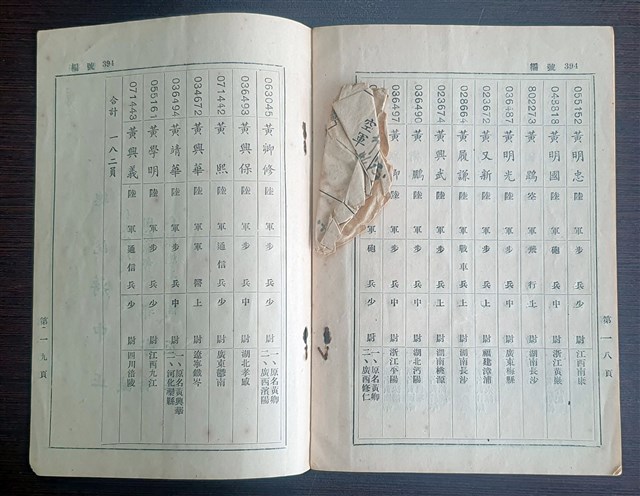 編號 394
055152 黃明忠 陸軍步兵少尉 江西南康
048818 黃明國 陸軍砲兵中尉 浙江黃巖
802273 黃鵬 空軍飛行上尉 湖南長沙
036487 黃明光 陸軍步兵中尉 廣東梅縣
023672 黃又新 陸軍步兵上尉 福建漳浦
028664 黃履謙 陸軍戰車兵上尉 湖南長沙
023674 黃興武 陸軍步兵上尉 湖南桃源
036490 黃鵬 陸軍步兵中尉 湖北沔陽
036497 黃 陸軍步兵中尉 浙江平陽
軍砲兵少尉 一、原名黃卿 二、廣西修仁
第一八頁
空軍
編號 394
063045 黃卿修 陸軍步兵少尉 一、原名黃卿 二、廣西賓陽
036493 黃興保 陸軍步兵中尉 湖北孝感
071442 黃熙 陸軍通信兵少尉 廣東
034672 黃興華 陸軍軍醫上尉 遼寧鐵嶺
036494 黃靖華 陸軍步兵中尉 一、原名黃興華 二、河北縣
055161 黃學明 陸軍步兵少尉 江西九江
071443 黃興義 陸軍通信兵少尉 四川涪陵
合計 一八二員
第一九頁